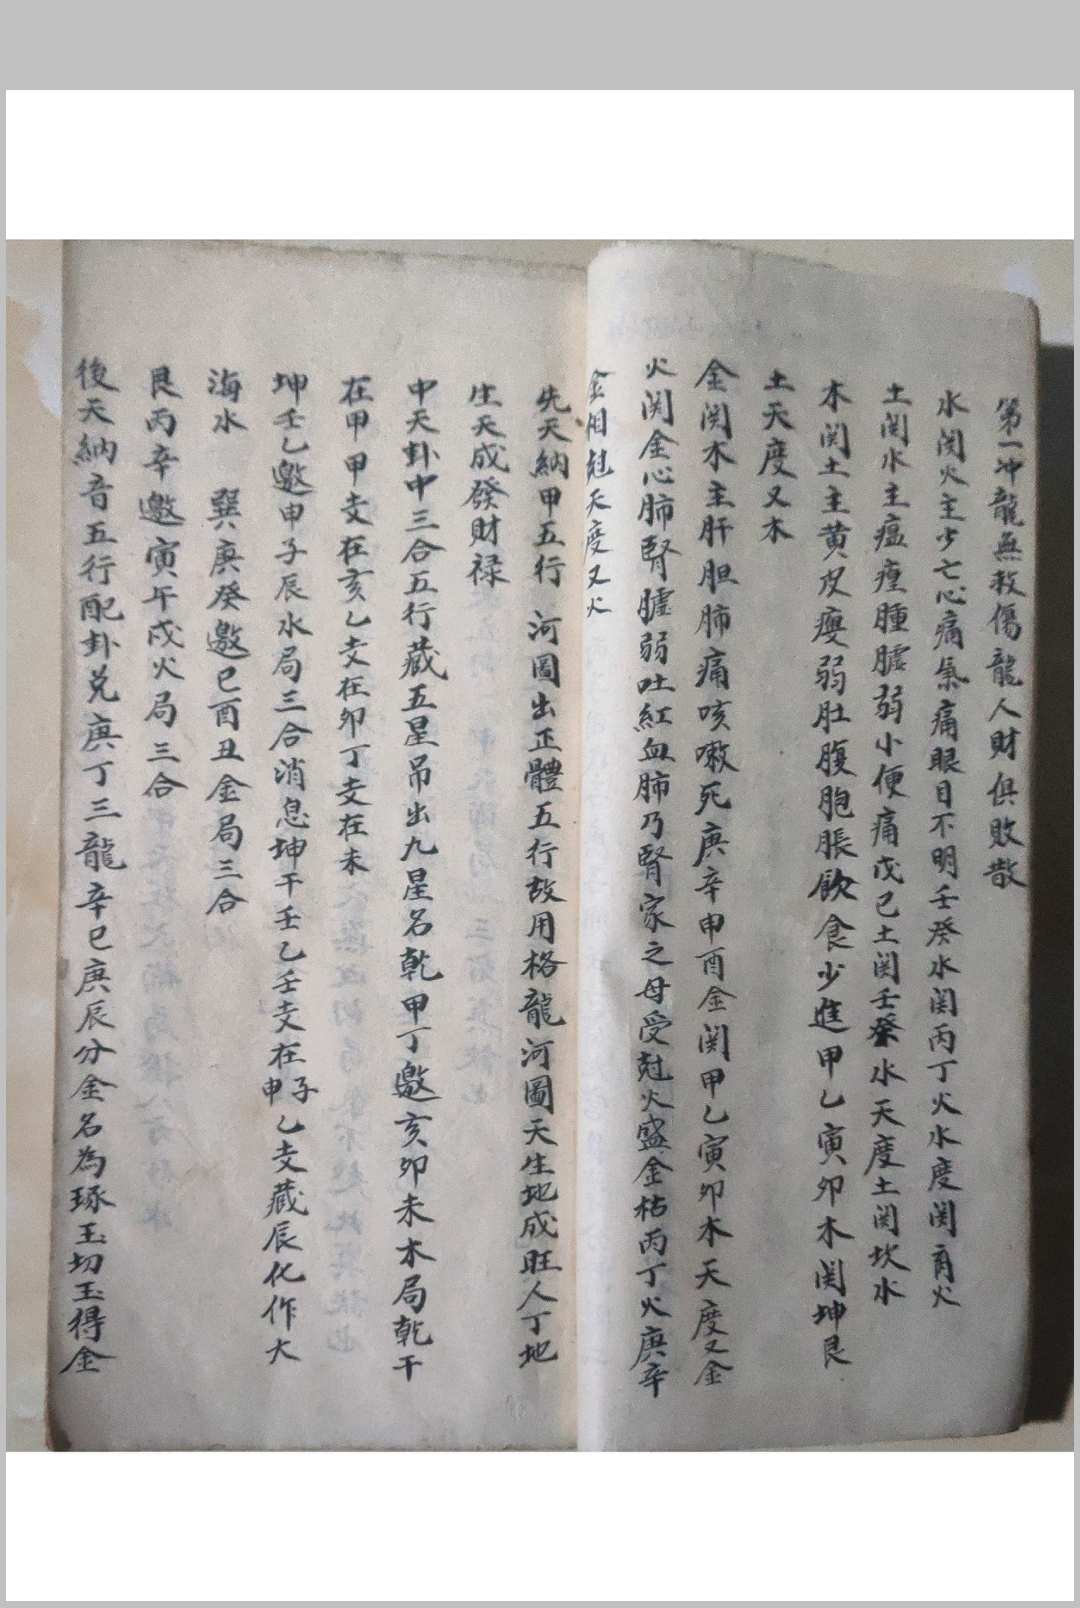 第一冲龍無救傷龍人財俱敗散
水関火主少亡心痛氣痛眼目不明壬癸水関丙丁火水度関南火
土関水主瘟㾮腫臌弱小便痛戊己土関壬癸水天度土関坎水
木関土主黄皮瘦弱肚腹胞脹飲食少進甲乙寅卯木関坤艮
土天度又木
金関木主肝胆肺痛咳嗽死庚辛申酉金関甲乙寅卯木天度又金
火関金心肺腎臌弱吐紅血肺乃腎家之母受尅火盛金枯丙丁火庚辛
金相尅天度又火
先天納甲五行 河圖出正體五行故用格龍河圖天生地成旺人丁地
生天成發財禄
中天卦中三合五行藏五星吊出九星名乾甲丁邀亥卯未木局乾干
在甲甲支在亥乙支在卯丁支在未
坤壬乙邀申子辰水局三合消息坤干壬乙壬支在子申乙支藏辰化作大
海水 巽庚癸邀巳酉丑金局三合
艮丙辛邀寅午戌火局三合
後天納音五行配卦兑庚丁三龍辛巳庚辰分金名為琢玉切玉得金